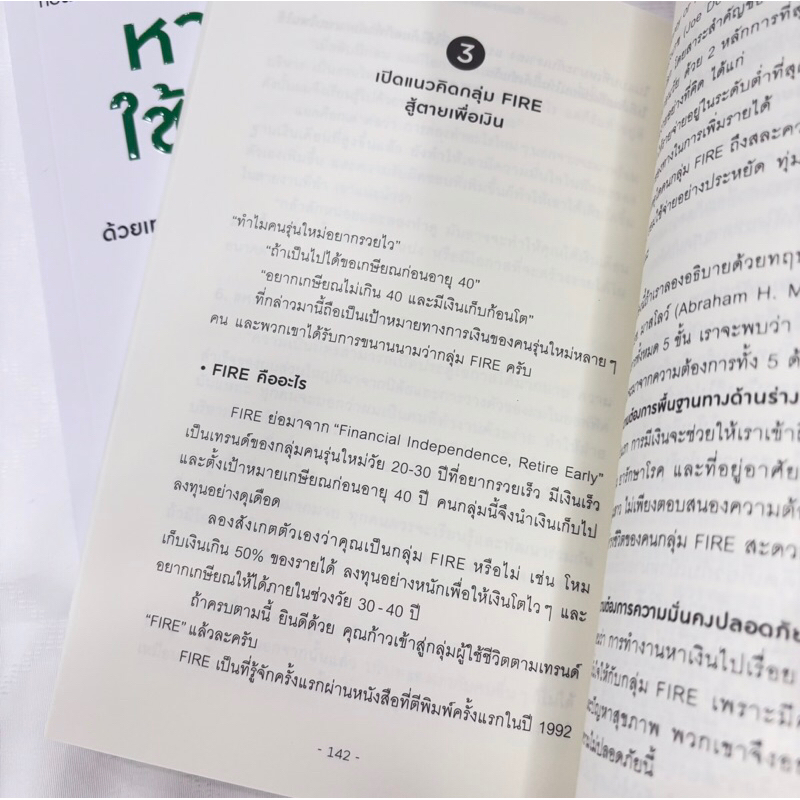 หา
ใช้
3
เปิดแนวคิดกลุ่ม FIRE
สู้ตายเพื่อเงิน
"ทำไมคนรุ่นใหม่อยากรวยไว"
"ถ้าเป็นไปได้ขอเกษียณก่อนอายุ 40"
"อยากเกษียณไม่เกิน 40 และมีเงินเก็บก้อนโต"
ที่กล่าวมานี้ถือเป็นเป้าหมายทางการเงินของคนรุ่นใหม่หลายๆ
คน และพวกเขาได้รับการขนานนามว่ากลุ่ม FIRE ครับ
• FIRE คืออะไร
FIRE ย่อมาจาก "Financial Independence, Retire Early"
เป็นเทรนด์ของกลุ่มคนรุ่นใหม่วัย 20-30 ปีที่อยากรวยเร็ว มีเงินเร็ว
และตั้งเป้าหมายเกษียณก่อนอายุ 40 ปี คนกลุ่มนี้จึงนำเงินเก็บไป
ลงทุนอย่างดุเดือด
ลองสังเกตตัวเองว่าคุณเป็นกลุ่ม FIRE หรือไม่ เช่น โหม
เก็บเงินเกิน 50% ของรายได้ ลงทุนอย่างหนักเพื่อให้เงินโตไวๆ และ
อยากเกษียณให้ได้ภายในช่วงวัย 30-40 ปี
ถ้าครบตามนี้ ยินดีด้วย คุณก้าวเข้าสู่กลุ่มผู้ใช้ชีวิตตามเทรนด์
"FIRE" แล้วละครับ
FIRE เป็นที่รู้จักครั้งแรกผ่านหนังสือที่ตีพิมพ์ครั้งแรกในปี 1992
- 142 -
(Joe Do
โดยสาระสำคัญ
ด้วย 2 หลักการที่
ได้แก่
อยู่ในระดับต่ำที่สุ
ในการเพิ่มรายได้
คนกลุ่ม FIRE ถึงสละคว
ใช้จ่ายอย่างประหยัด ทุ่ม
เราลองอธิบายด้วยทฤษ
มาสโลว์ (Abraham H. M
ทั้งหมด 5 ชั้น เราจะพบว่า
มาจากความต้องการทั้ง 5 ด้
ต้องการพื้นฐานทางด้านร่าง
การมีเงินจะช่วยให้เราเข้าถึ
ยารักษาโรค และที่อยู่อาศัย
ไม่เพียงตอบสนองความต้อ
ชีวิตของคนกลุ่ม FIRE สะดว
ต้องการความมั่นคงปลอดภัย
การทำงานหาเงินไปเรื่อย
ให้กับกลุ่ม FIRE เพราะมีค
ปัญหาสุขภาพ พวกเขาจึงอย
ไม่ปลอดภัยนี้